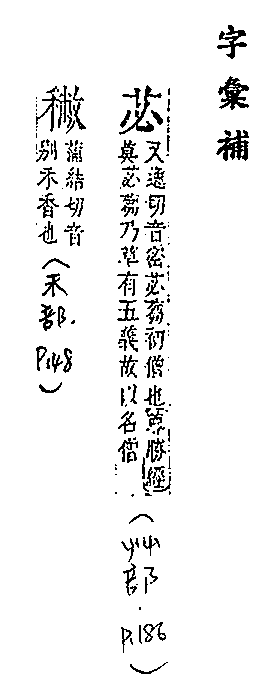 字彙補
苾
又邊切音密苾蒭初僧也尊勝經
莫苾蒭乃草有五義故以名僧
(艸部.P.186)
䅥
蒲結切音
別禾香也
(禾部.P.148)